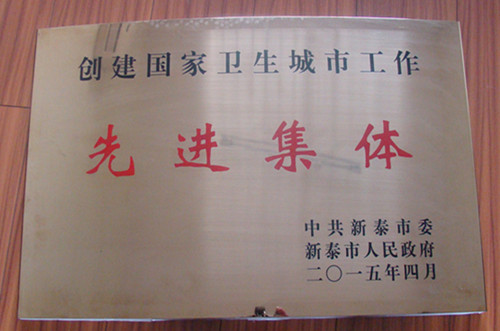 创建国家卫生城市工作
先进集体
中共新泰市委
新泰市人民政府
二〇一五年四月